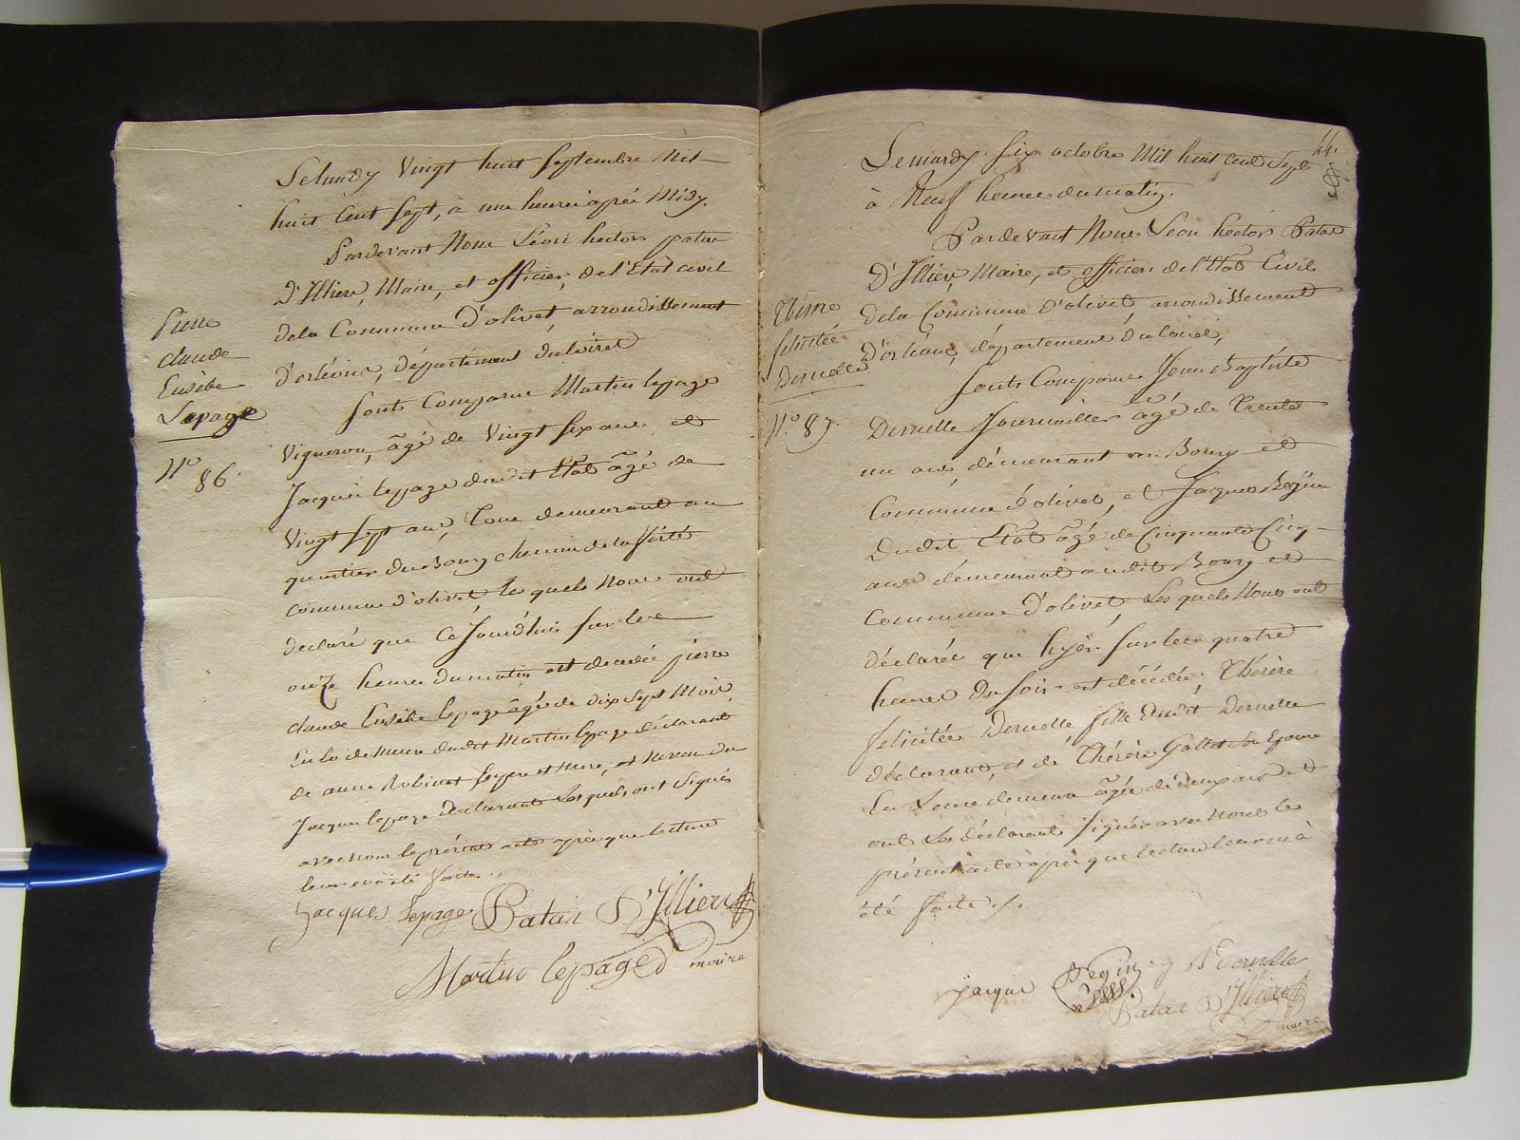 Le lundy Vingt huit Septembre Mil
huit Cent Sept, à une heure après Midy.
Pardevant Nous Léon hector patas
D'Illiers, Maire, et officier, de l'Etat civil
dela Commune D'olivet, arrondissement
d'orléans, département du loiret
Sont Comparus Martin lepage
Vigneron, âgé de Vingt Six ans et
Jacques lepage dudit Etat âgé de
Vingt Sept ans, tous demeurant au
quartier du Bourg chemin de la ferté
commune d'olivet les quels Nous ont
declaré que Cejourd'hui Sur les
onze heures du matin est decedé pierre
claude Eusèbe lepage âgé de dix Sept Mois
En la demeure dudit Martin lepage déclarant
de anne Robinet Ses pere et Mere, et Neveu du
Jacques lepage Declarant Lesquels ont Signés
avec nous le présent acte après que lecture
leur en a été faite.
Jacques Lepage Patas D'Illiers
Martin lepage maire
Pierre
claude
Eusèbe
Lepage
N.o
86.
44.
Le mardy Six octobre Mil huit Cent Sept
à Neuf heures du matin.
Pardevant Nous Léon hector Patas
D'Illiers, Maire, et officier de l'Etat Civil
dela Commune D'olivet, arrondissement
D'orléans, département du loiret,
Sont Comparus Jean Baptiste
Deruelle Journaillier âgé de Trente
un ans, demeurant au Bourg et
Commune d'olivet, et Jacques Begün
Dudit Etat âgé de Cinquante Cinq
ans demeurant audit Bourg et
Commune D'olivet, Lesquels Nous ont
déclaré que hyer Sur les quatre
heures du Soir est décédée Thérèse
felicitée Deruelle fille dudit Deruelle
déclarant, et de Thérèse Gallet Son Epouse
En Leur demeure âgée de Deux ans et
ont Les déclarants Signés avec Nous le
présent acte après que lecture leur en a
été faite ./.
jacque Begin J B Deruelle
Patas D'Illiers
maire
Thérèse
felicitée
Deruelle
N.o 87.